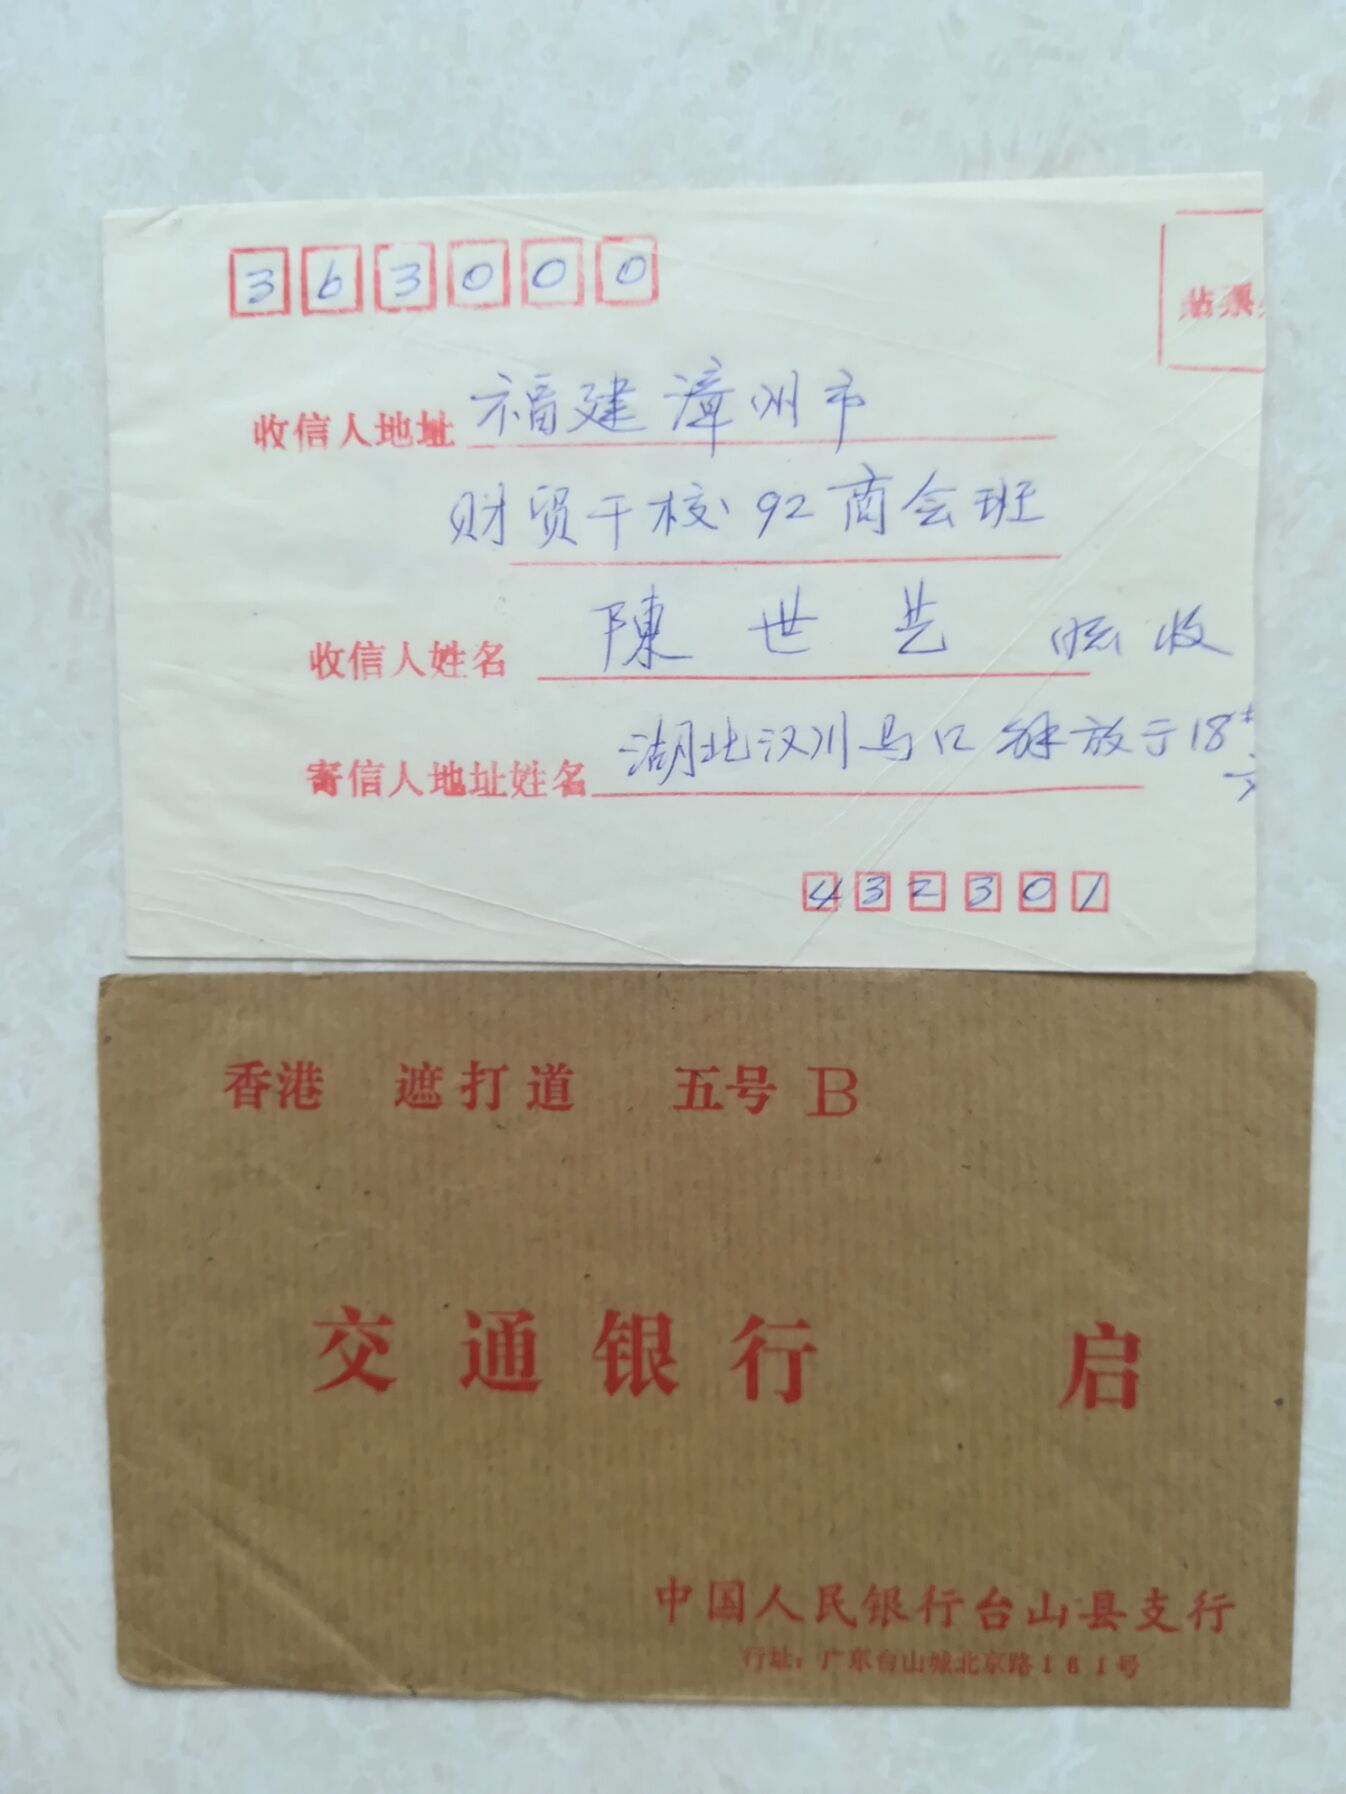 363000
贴票
收信人地址 福建漳州市
财贸干校92商会班
收信人姓名 陳世艺 收
寄信人地址姓名 湖北汉川马口解放于18#
432301
香港 遮打道 五号B
交通银行 启
中国人民银行台山县支行
行址：广东台山城北京路161号